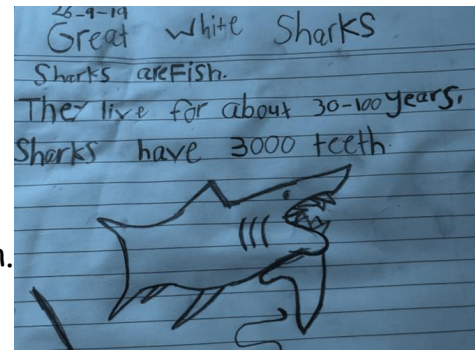 26-9-19
Great White Sharks
Sharks are Fish.
They live for about 30-100 years.
Sharks have 3000 teeth.